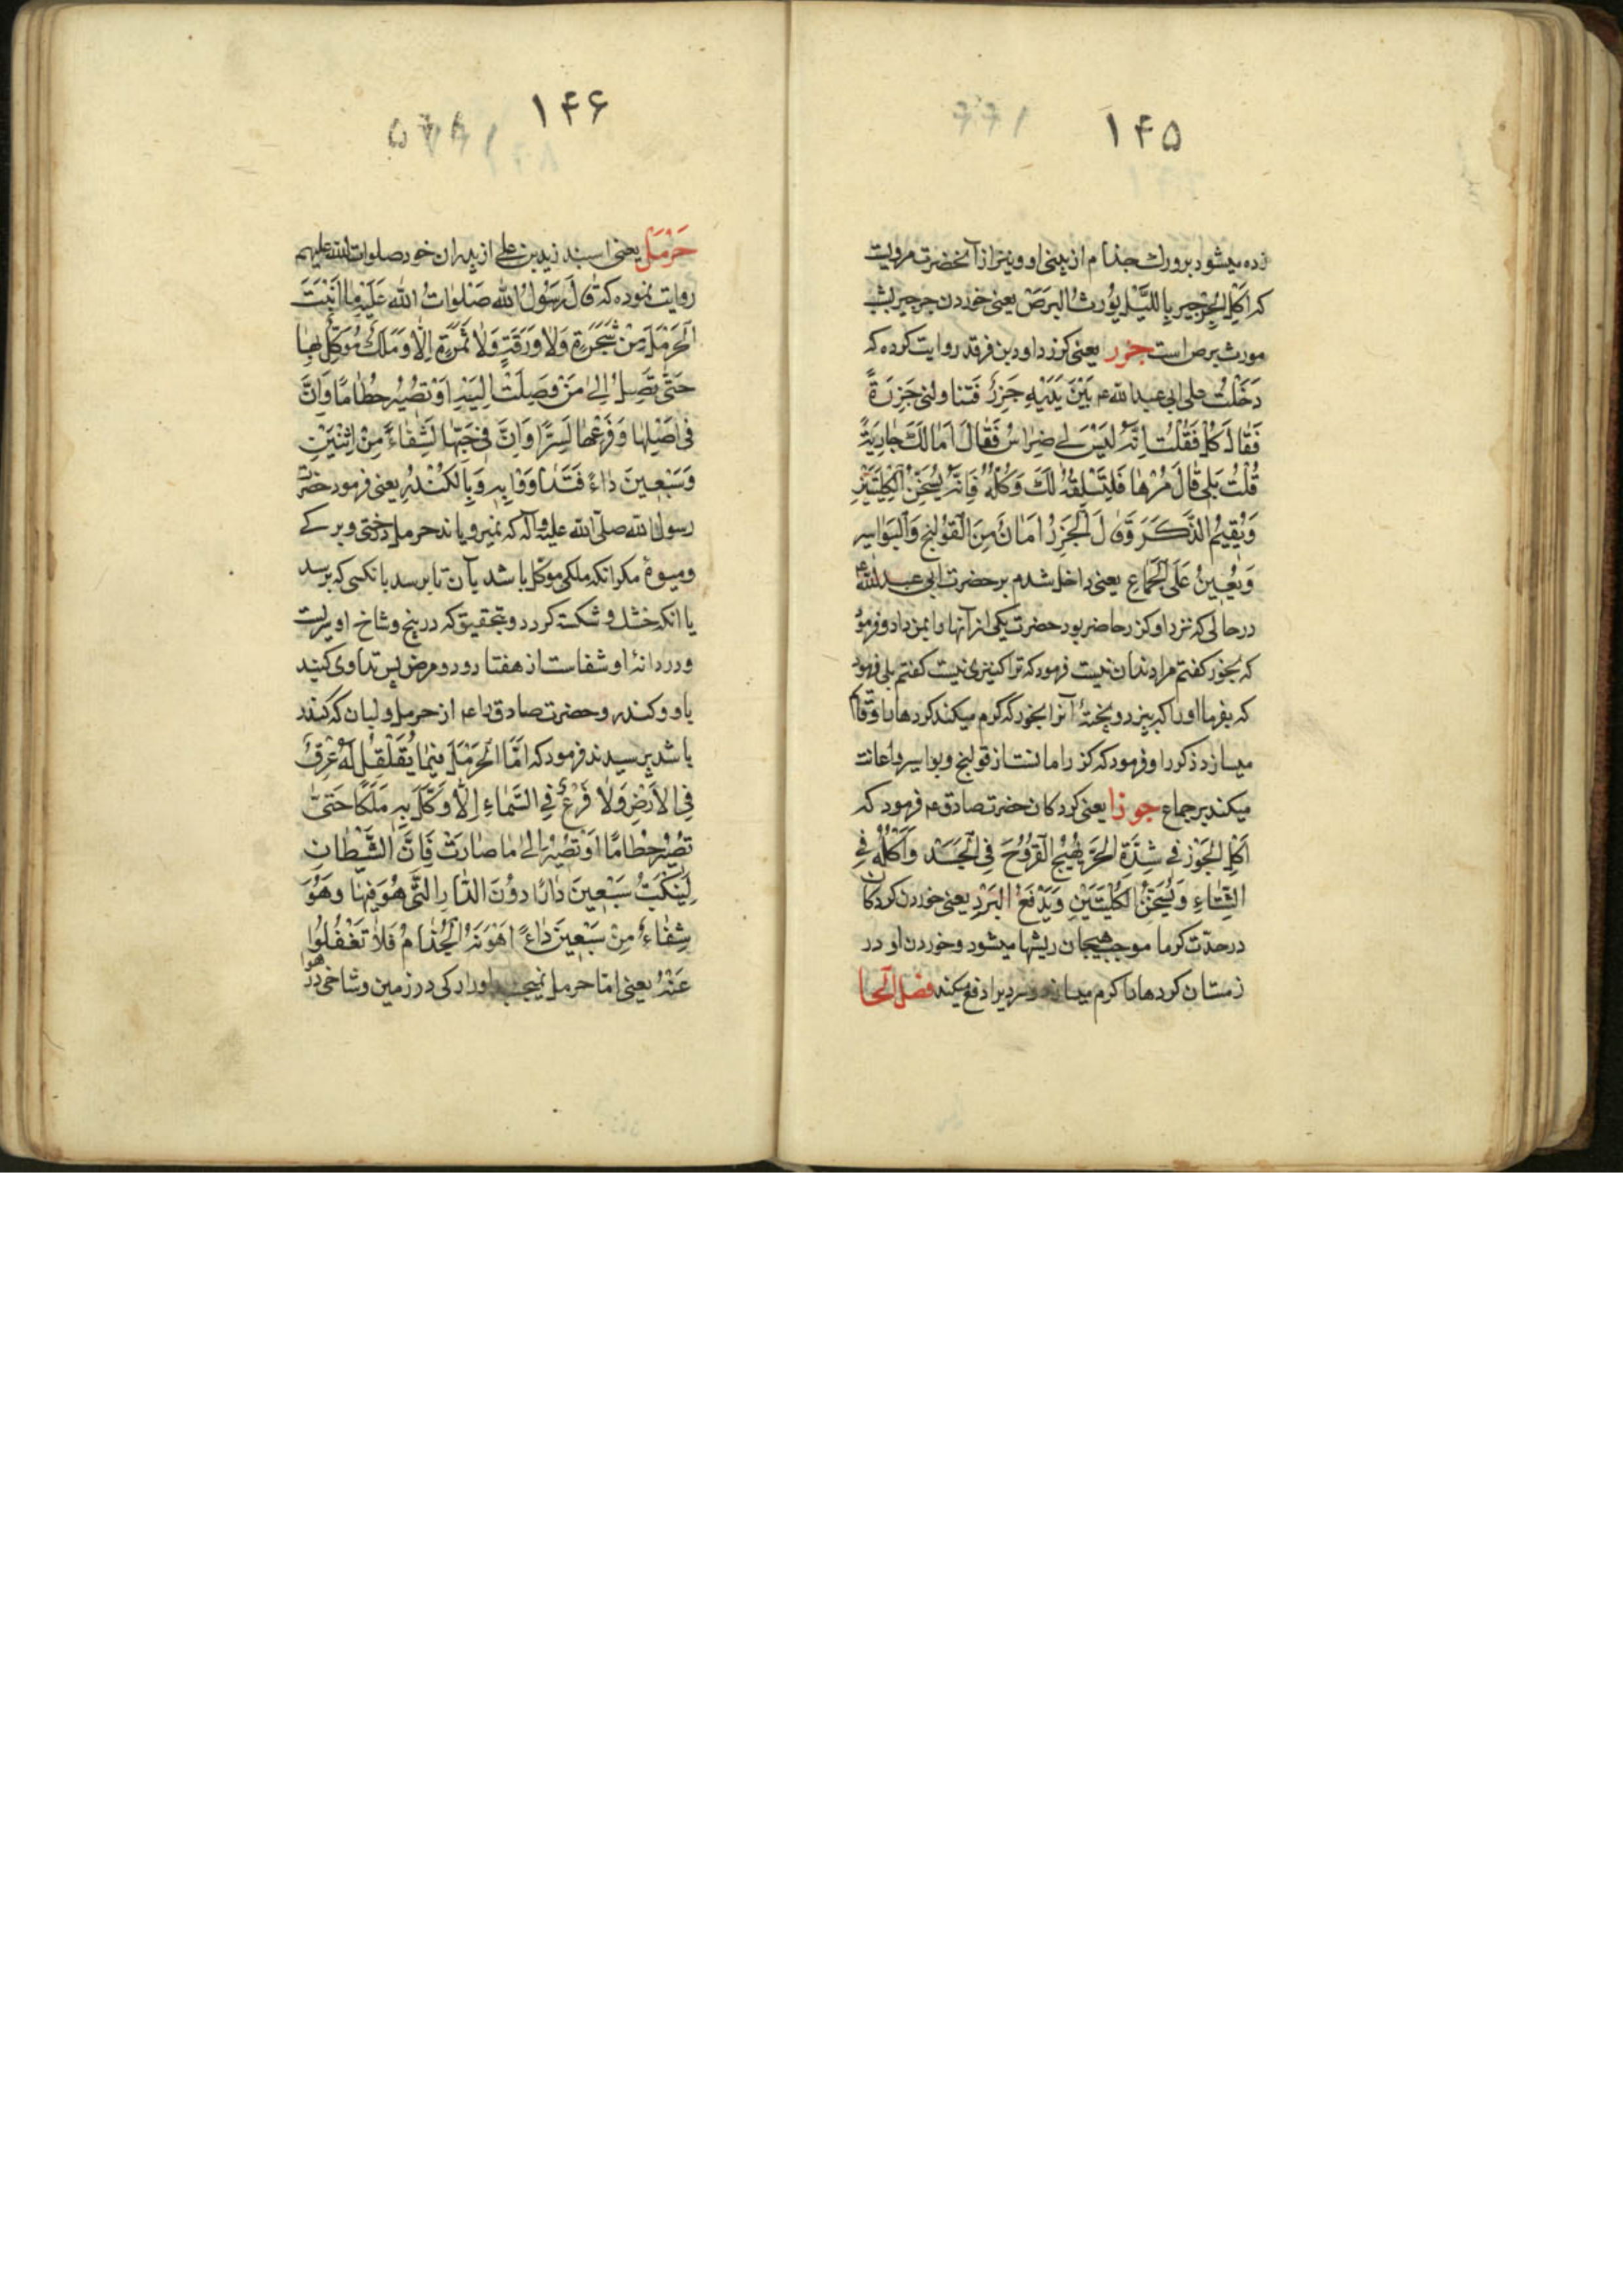 ۱۴۵
زده میشود برو رك جذام از بینی او و نیز از آنحضرت مرویست
که اَکْلُ الجِرْجیرِ بِاللَّیْلِ یُورِثُ البَرَصَ یعنی خوردن جرجیر بشب
مورث برص است جزر یعنی کزر داود بن فرقد روایت کرده که
دَخَلْتُ علی ابی عبدالله ع بَیْنَ یَدَیْهِ جَزَرٌ فَتَناوَلَنی جَزَرَةً
فَقالَ کُلْ فَقُلْتُ اِنَّهُ لَیْسَ لی ضِراسٌ فَقالَ اَمالَكَ جارِیَةٌ
قُلْتُ بَلی قالَ مُرْها فَلْتَسْلِقْهُ لَكَ وَکُلْهُ فَاِنَّهُ یُسَخِّنُ الکِلْیَتَیْنِ
وَیُقیمُ الذَّکَرَ وَقالَ الجَزَرُ اَمانٌ مِنَ القَوْلَنْجِ وَالبَواسِیرِ
وَیُعینُ عَلَی الجِماعِ یعنی داخل شدم بر حضرت ابی عبدالله ع
در حالی که نزد او کزر حاضر بود حضرت یکی از آنها را بمن داد و فرمود
که بخور کفتم مرا دندان نیست فرمود که ترا کنیزی نیست کفتم بلی فرمود
که بفرما او را که بپزد و پختهٔ آنرا بخور که کرم میکند کردها را و قایم
میسازد ذکر را و فرمود که کزر امانست از قولنج و بواسیر و اعانت
میکند بر جماع جوز یعنی کردکان حضرت صادق ع فرمود که
اَکْلُ الجَوْزِ فی شِدَّةِ الحَرِّ یُهَیِّجُ القُرُوحَ فِی الجَسَدِ وَاَکْلُهُ فِی
الشِّتاءِ یُسَخِّنُ الکُلْیَتَیْنِ وَیَدْفَعُ البَرْدَ یعنی خوردن کردکان
در حدّت کرما موجب هیجان ریشها میشود و خوردن او در
زمستان کردها را کرم میسازد و سردیرا دفع میکند فصل الحا
۱۴۶
حَرْمَل یعنی اسپند زید بن علی از پدران خود صلوات الله علیهم
روایت نموده که قالَ رَسُولُ الله صَلَواتُ الله عَلَیْهِ ما اَنْبَتَ
الحَرْمَلَ مِنْ شَجَرَةٍ وَلا وَرَقَةٍ وَلا ثَمَرَةٍ اِلّا وَمَلَكٌ مُوَکَّلٌ بِها
حَتّی تَصِلَ اِلی مَنْ وَصِلَتْ اِلَیْهِ اَوْ تَصیرَ حُطامًا وَاِنَّ
فی اَصْلِها وَفَرْعِها لَسِرًّا وَاِنَّ فی حَبِّها لَشِفاءً مِنْ اِثْنَیْنِ
وَسَبْعینَ داءً فَتَداوَوْا بِهِ وَبِالکُنْدُرِ یعنی فرمود حضرت
رسول الله صلّی الله علیه وآله که نمیرویاند حرمل درختی و برکی
و میوهٔ مکر انکه ملکی موکّل باشد بآن تا برسد بانکسی که برسد
یا انکه خشك و شکسته کردد و بتحقیق که در بیخ و شاخ او سریست
و در دانهٔ او شفاست از هفتاد و دو مرض پس تداوی کنید
باو و کندر و حضرت صادق را ع از حرمل و لبان که کندر
باشد پرسیدند فرمود که اَمّا الحَرْمَلُ فَما یُقَلْقَلُ لَهُ عِرْقٌ
فِی الاَرْضِ وَلا فَرْعٌ فِی السَّماءِ اِلّا وَکَّلَ بِهِ مَلَكًا حَتّی
تَصیرَ حُطامًا اَوْ تَصیرَ اِلی ما صارَتْ فَاِنَّ الشَّیْطانَ
لَیَتَنَکَّبُ سَبْعینَ دارًا دُونَ الدّارِ الَّتی هُوَ فیها وَهُوَ
شِفاءٌ مِنْ سَبْعینَ داءً اَهْوَنُهُ الجُذامُ فَلا تَغْفُلُوا
عَنْهُ یعنی امّا حرمل نمی‌جنبد او را رکی در زمین و شاخی در هوا